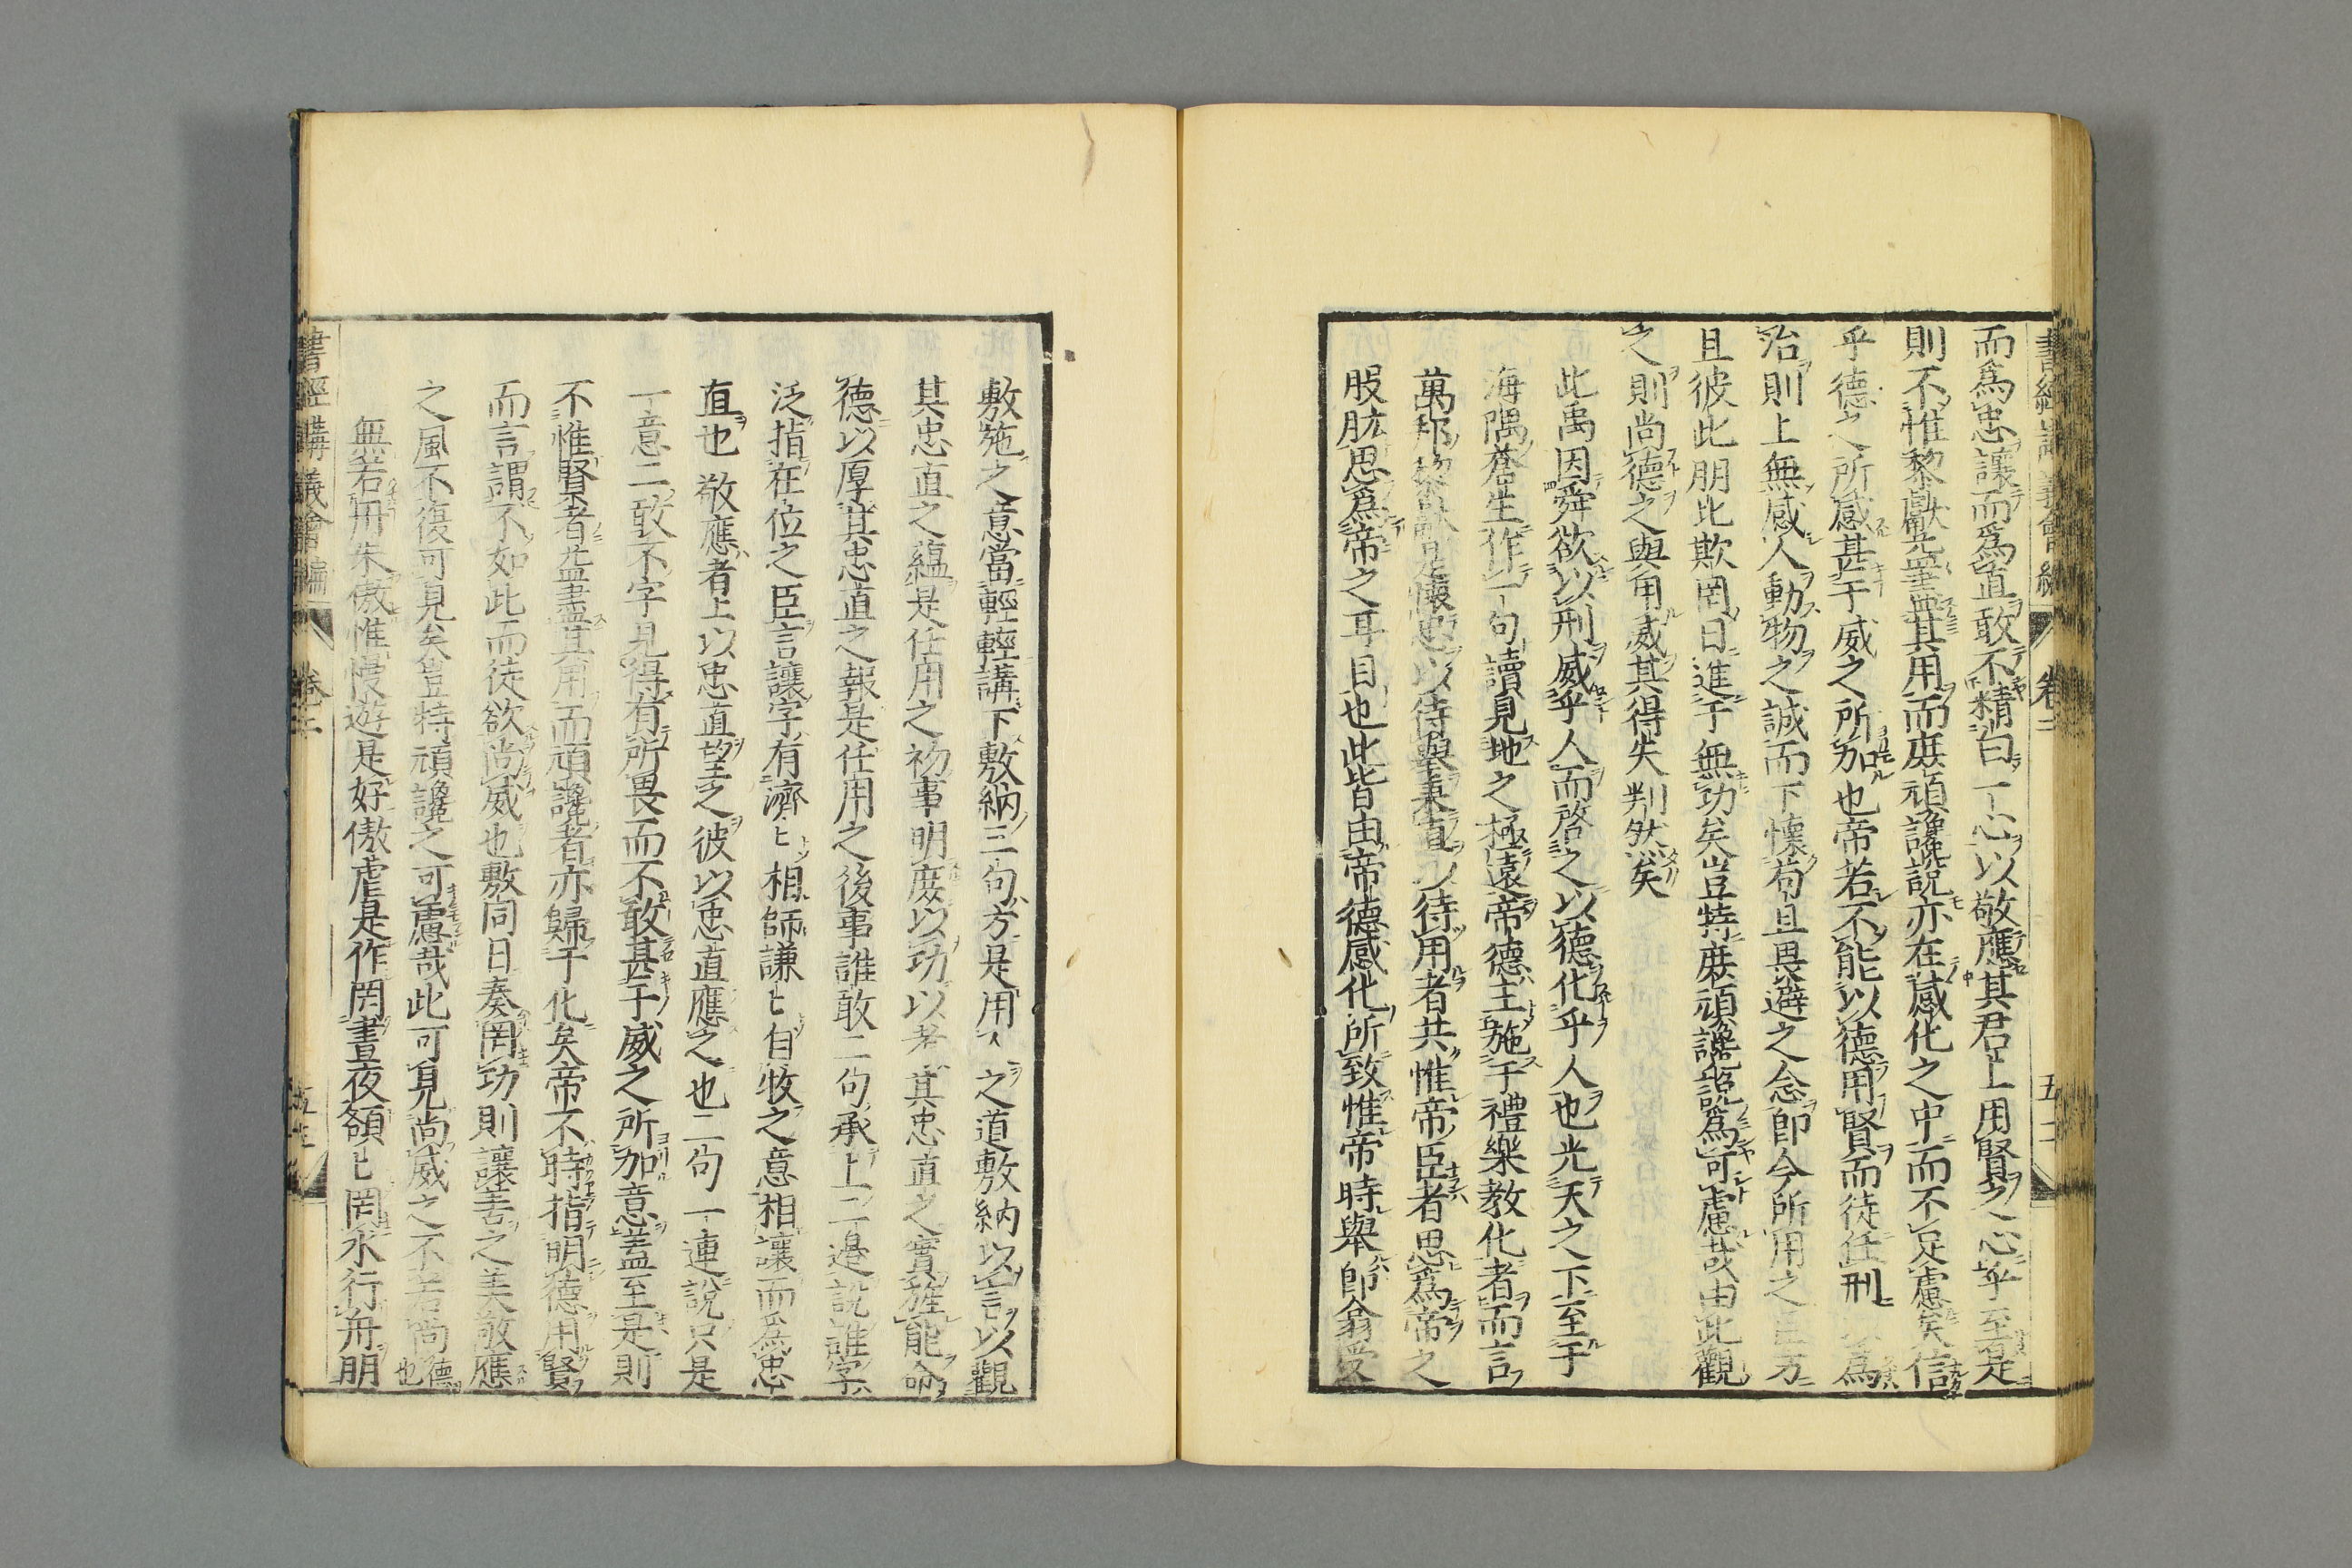 書經講義會編 卷二 五十二
而爲忠讓而爲直敢不精白一心以敬應其君上用賢之心乎至是
則不惟黎獻畢其用而庶頑讒說亦在感化之中而不足慮矣信
乎德之所感甚于威之所加也帝若不能以德用賢而徒任刑以爲
治則上無感人動物之誠而下懷苟且畏避之念即今所用之臣方
且彼此朋比欺罔日進于無功矣豈特庶頑讒說爲可慮哉由此觀
之則尚德之與用威其得失判然矣
此禹因舜欲以刑威乎人而啓之以德化乎人也光天之下至于
海隅蒼生作一句讀見地之極遠帝德主施于禮樂教化者而言
萬邦黎獻是懷忠以待舉秉直以待用者共惟帝臣者思爲帝之
股肱思爲帝之耳目也此皆由帝德感化所致惟帝時舉即翕受
敷施之意當輕輕講下敷納三句方是用人之道敷納以言以觀
其忠直之蘊是任用之初事明庶以功以考其忠直之實旌能命
德以厚其忠直之報是任用之後事誰敢二句承上二邊說誰字
泛指在位之臣言讓字有濟〻相師謙〻自牧之意相讓而爲忠
直也敬應者上以忠直望之彼以忠直應之也二句一連說只是
一意二敢不字見得有所畏而不敢甚于威之所加意蓋至是則
不惟賢者益盡其用而頑讒者亦歸于化矣帝不時指明德用賢
而言謂不如此而徒欲尚威也敷同日奏罔功則讓善之美敬應
之風不復可見矣豈特頑讒之可慮哉此可見尚威之不若尚德也
無若丹朱傲惟慢遊是好傲虐是作罔晝夜頟〻罔水行舟朋
書經講義會編 卷二